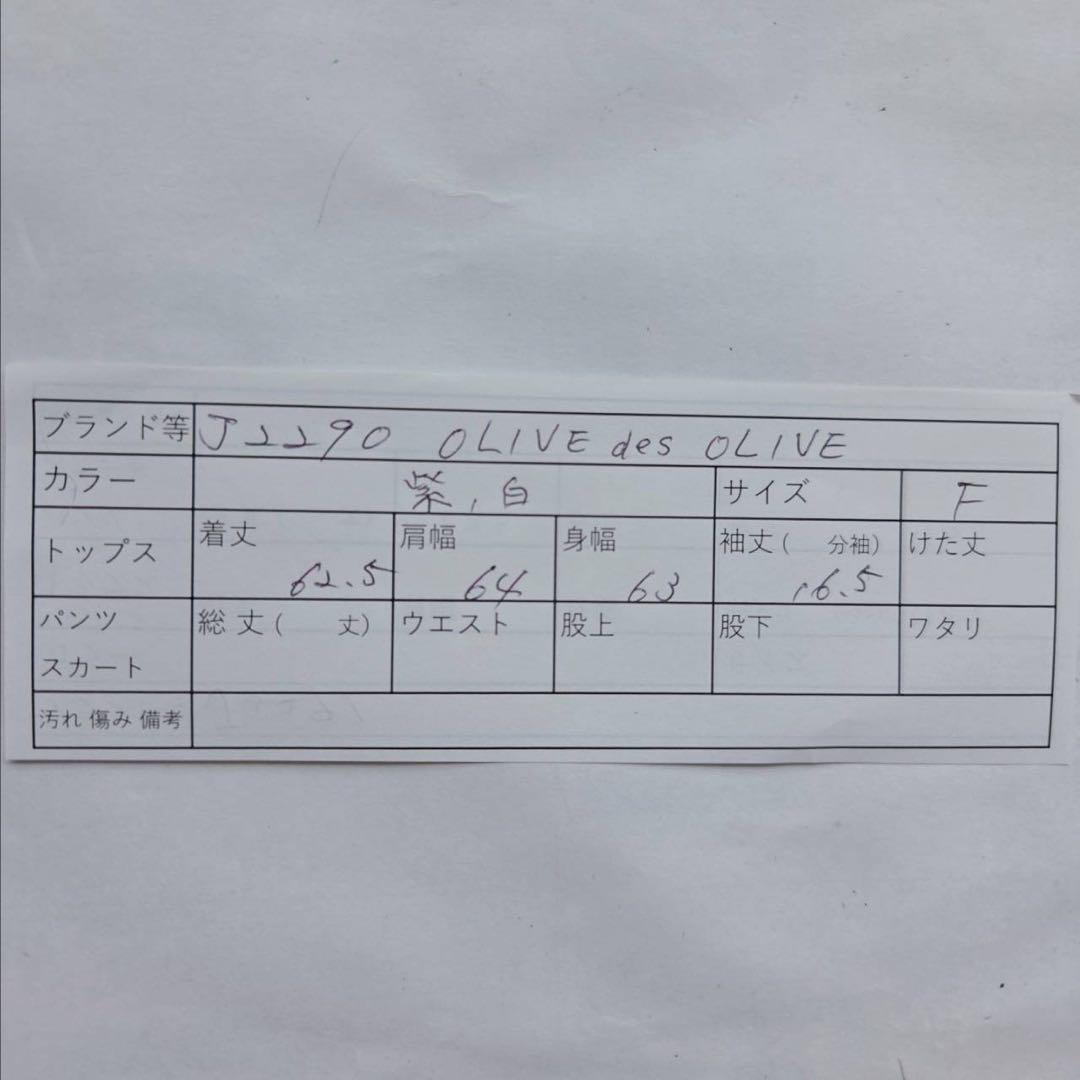 ブランド等 J2290 OLIVE des OLIVE
カラー 紫,白 サイズ F
トップス 着丈 62.5 肩幅 64 身幅 63 袖丈( 分袖) 16.5 けた丈
パンツ スカート 総丈( 丈) ウエスト 股上 股下 ワタリ
汚れ 傷み 備考